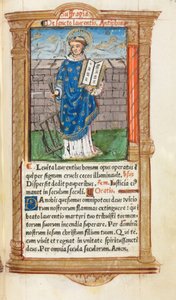 De sancto laurentio. Antiphona.
Leuita laurentius bonum opus operatus est
qui per signum crucis cecos illuminauit. Vers.
Dispersit dedit pauperibus. Resp. Iusticia eius
manet in seculum seculi. Oratio.
Da nobis quesumus omnipotens deus vitio-
rum nostrorum flammas extinguere: qui
beato laurentio martyri tuo tribuisti tormen-
torum suorum incendia superare. Per domi-
num nostrum iesum christum filium tuum. Qui te-
cum viuit et regnat in vnitate spiritussancti
deus. Per omnia secula seculorum. Amen.